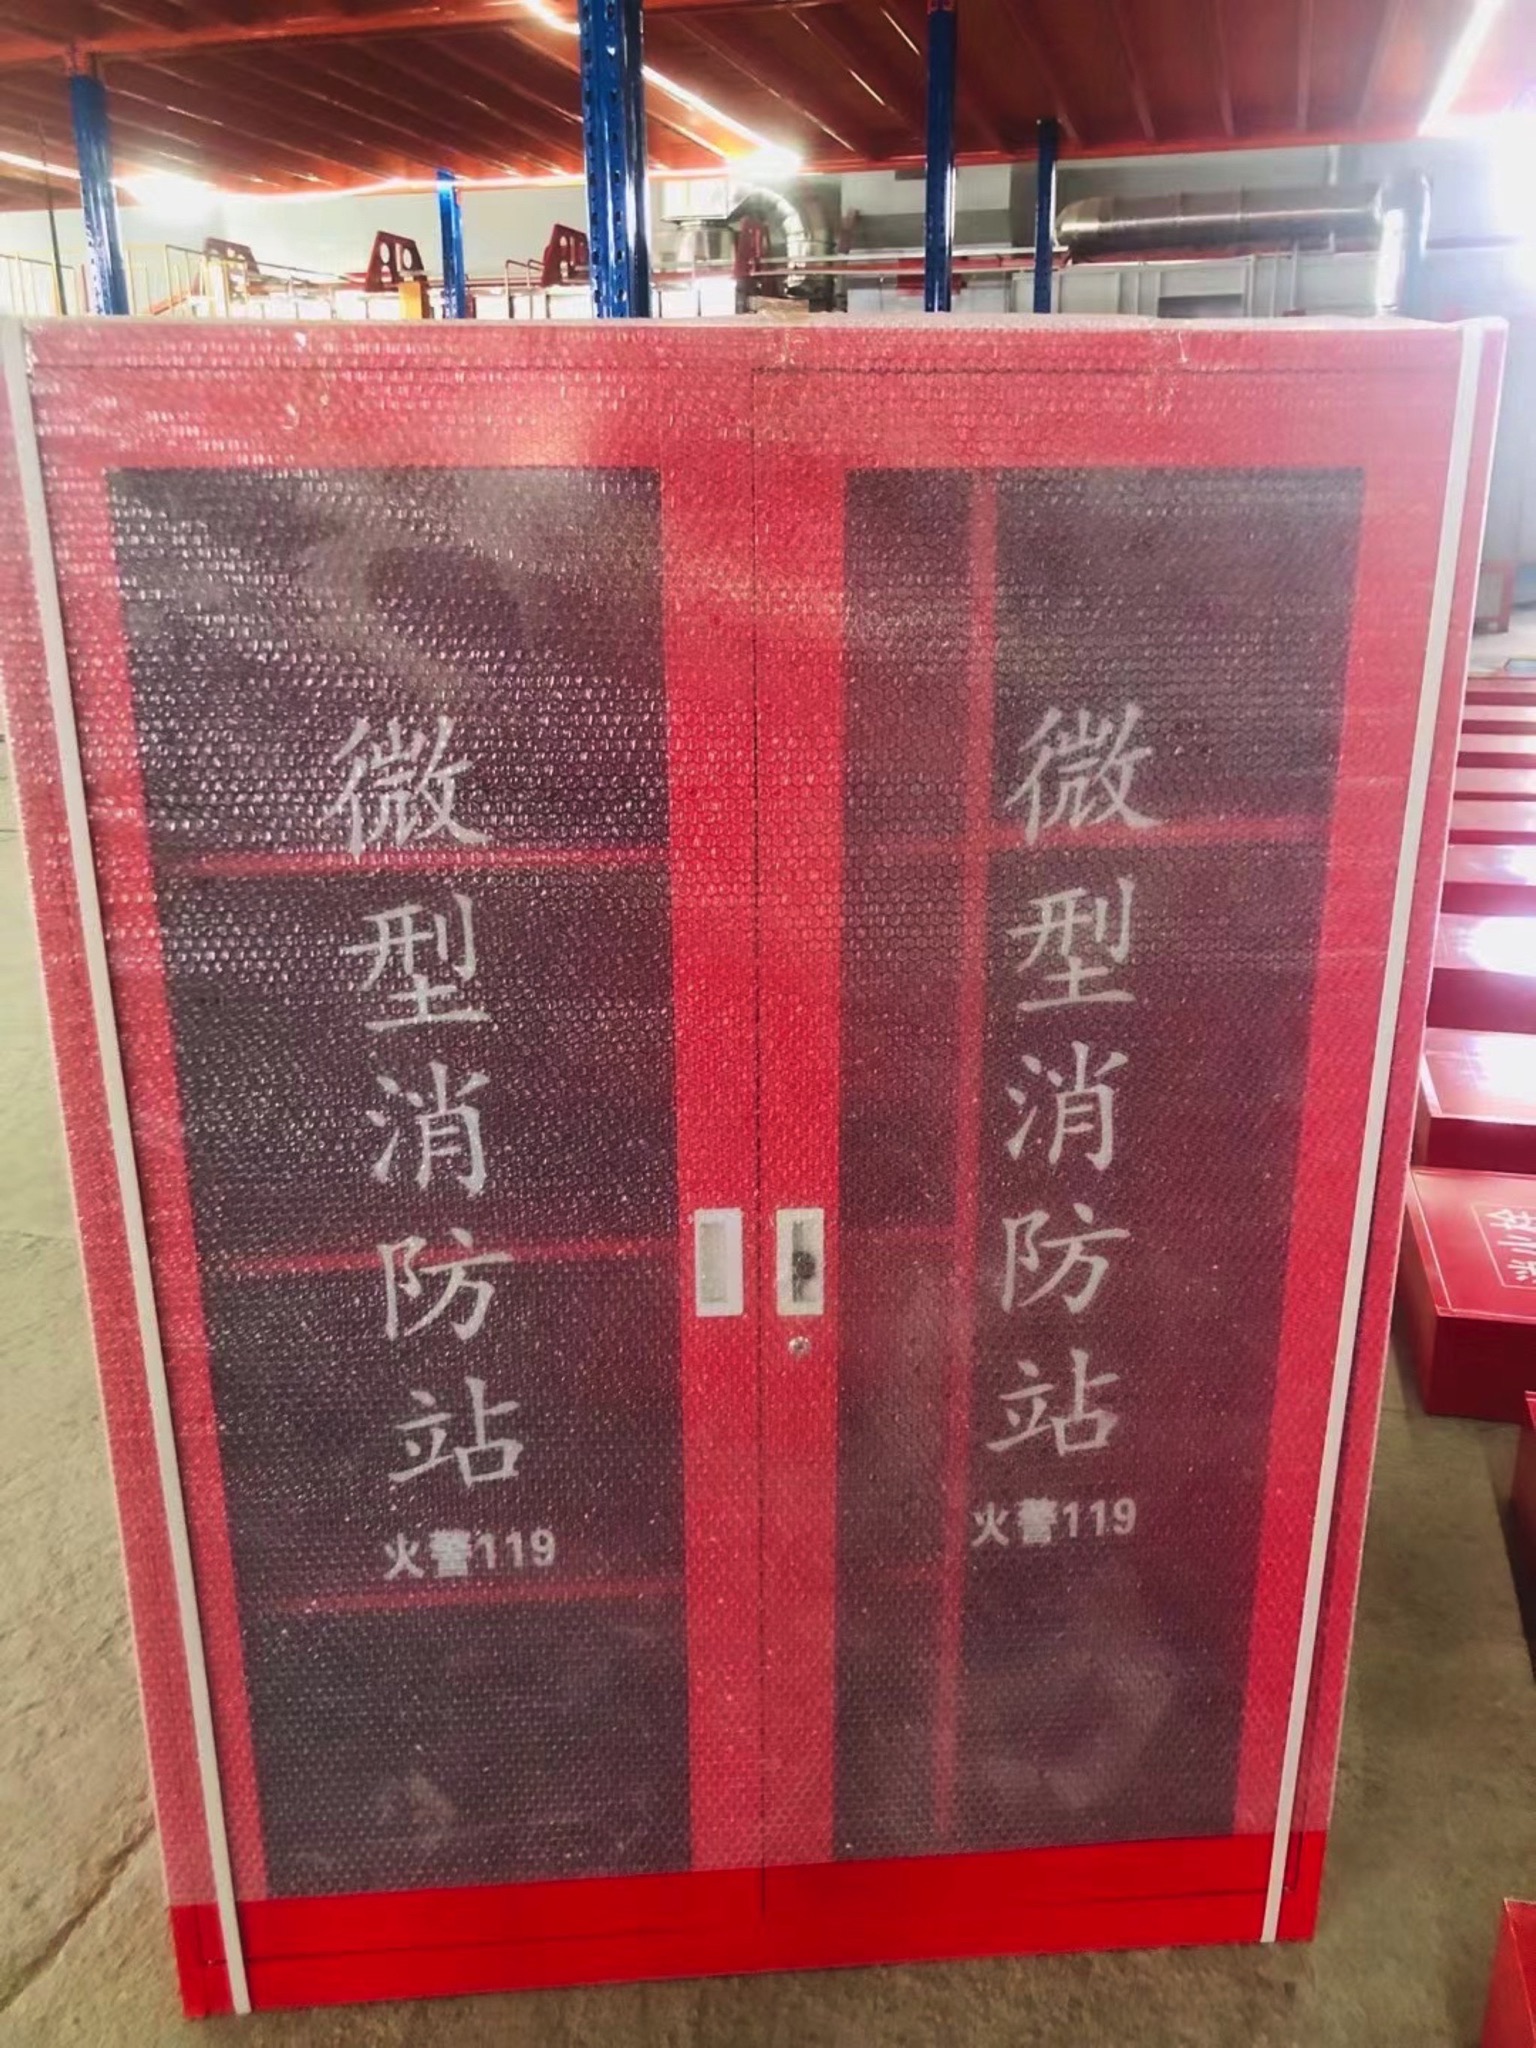 微型消防站
火警119
微型消防站
火警119
消火栓